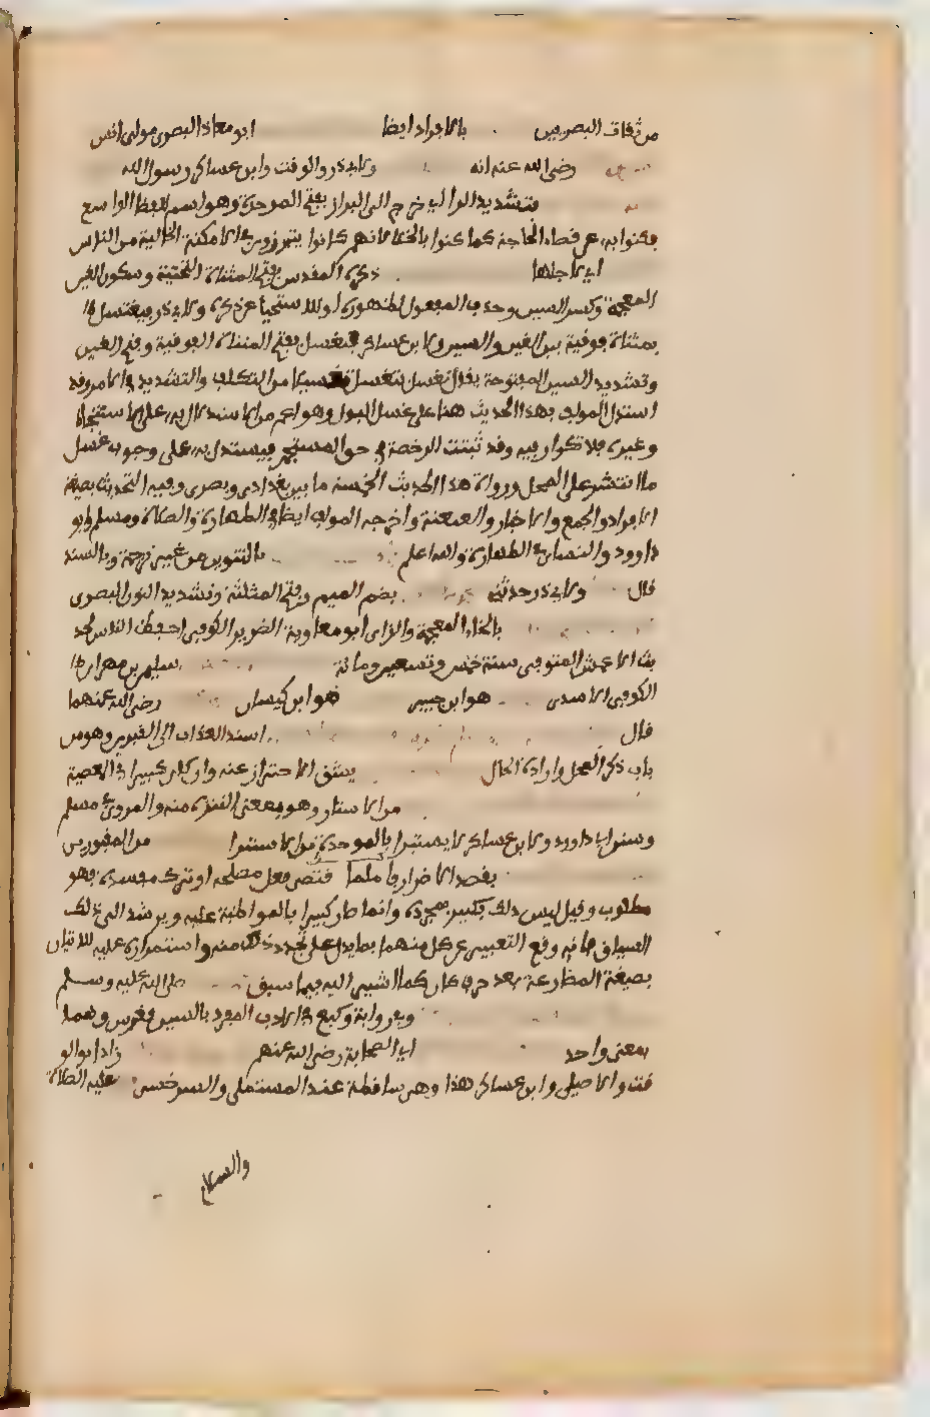 من ثقات البصريين بالافراد ايضا ابو معاذ البصرى مولى انس
رضى الله عنه انه ولابى ذر والوقت وابن عساكر رسول الله
بتشديد الراء اى خرج الى البراز بفتح الموحدة وهو اسم للفضا الواسع
فكنوا به عن قضاء الحاجة كما كنوا بالخلا لانهم كانوا يتبرزون فى الامكنة الخالية من الناس
اى لاجلها ذكره المقدس بفتح المثناة التحتية وسكون الغين
المعجمة وكسر السين وحذف المفعول لظهوره او للاستحيا عن ذكره ولابى ذر فيغتسل
بمثناة فوقية بين الغين والسين ولابن عساكر فتغسل بفتح المثناة الفوقية وفتح الغين
وتشديد السين المفتوحة يقال تغسل يتغسل تغسلا من التكلف والتشديد فى الامر وقد
استدل المولف بهذا الحديث هنا على غسل البول وهو اعم من الاستدلال به على الاستنجاء
وغيره فلا تكرار فيه وقد ثبتت الرخصة فى حق المستجمر فيستدل به على وجوب غسل
ما انتشر على المحل ورواة هذا الحديث الخمسة ما بين بغدادى وبصرى وفيه التحديث بصيغة
الافراد والجمع والاخبار والعنعنة واخرجه المولف ايضا فى الطهارة والصلاة ومسلم وابو
داوود والنساى فى الطهارة والله اعلم بالتنوين من غير ترجمة وبالسند
قال ولابى ذر حدثنى بضم الميم وفتح المثلثة وتشديد النون البصرى
بالخاء المعجمة والزاى ابو معاوية الضرير الكوفى احفظ الناس لحد
يث الاعمش المتوفى سنة خمس وتسعين ومائة سليمن بن مهران
الكوفى الاسدى هو ابن جبير هو ابن كيسان رضى الله عنهما
قال اسند العذاب الى القبرين وهو من
باب ذكر المحل وارادة الحال يشق الاحتراز عنه وان كان كبيرا فى المعصية
من الاستتار وهو بمعنى التنزه منه والمروى فى مسلم
وسنن ابى داوود ولابن عساكر لا يستبرا بالموحدة من الاستبرا من المقبورين
بقصد الاضرار فاما ما اقتضى فعل مصلحه او ترك مفسدة فهو
مطلوب وقيل ليس ذلك بكبير بمجرده وانما صار كبيرا بالمواظبة عليه ويرشد الى ذلك
السياق فانه وقع التعبير عن كل منهما بما يدل على تجدد ذلك منه واستمراره عليه للاتيان
بصيغة المضارعة بعد حرف كان كما اشير اليه فيما سبق صلى الله عليه وسلم
وفى رواية وكيع فى الادب المفرد بالسين مغرس وهما
بمعنى واحد اى الصحابة رضى الله عنهم زاد ابو الو
قت والاصيلى وابن عساكر هذا وهى ساقطة عند المستملى والسرخسى عليه الصلاة
والسلام